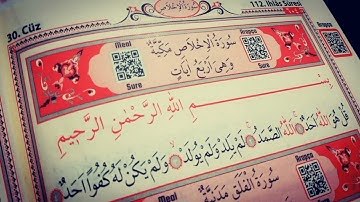 30. Cüz
سُورَةُ الْاِخْلَاصِ
112. İhlâs Sûresi
Meal
Sure
سُورَةُ الْاِخْلَاصِ مَكِّيَّةٌ
وَهِيَ اَرْبَعُ اٰيَاتٍ
بِسْمِ اللّٰهِ الرَّحْمٰنِ الرَّحِيمِ
قُلْ هُوَ اللّٰهُ اَحَدٌ اَللّٰهُ الصَّمَدُ لَمْ يَلِدْ وَلَمْ يُولَدْ وَلَمْ يَكُنْ لَهُ كُفُوًا اَحَدٌ
Meal
سُورَةُ الْفَلَقِ مَدَنِيَّةٌ